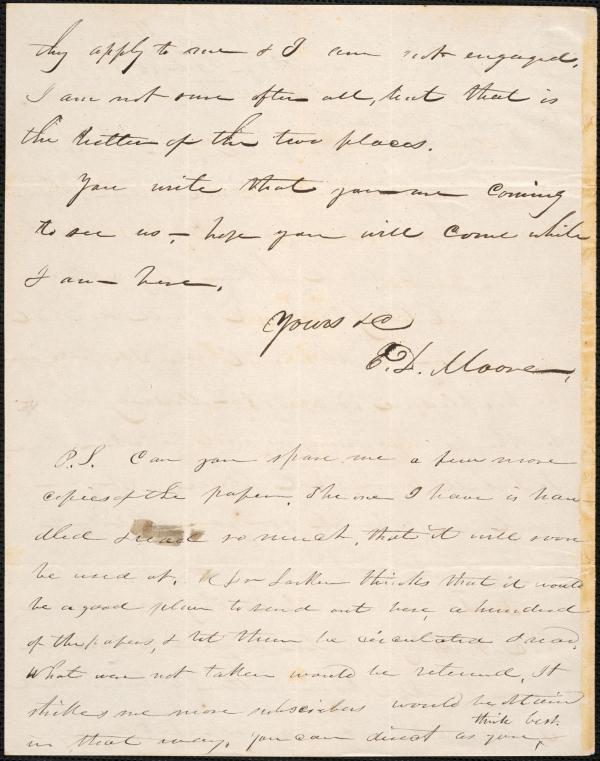 they apply to me & I am not engaged.
I am not sure after all, but that is
the better of the two places.
You write that you are coming
to see us, – hope you will come while
I am here.
Yours &c
E. D. Moore.
P.S. Can you spare me a few more
copies of the paper. The one I have is han
dled & read so much, that it will soon
be used up. thinks that it would
be a good plan to send out here, a hundred
of the papers, & let them be circulated & read.
What were not taken would be returned. It
strikes me more subscribers would be obtain
think best.
in that way. You can direct as you